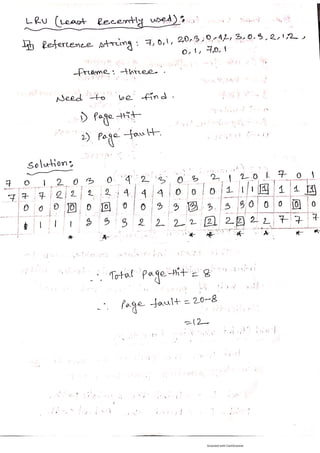 LRU (Least Recently used):
Reference string: 7,0,1, 20,3,0,42, 3,0,3,2,1,2,
0,1, 7,0,1
frame: three.
Need to be find.
1) Page Hit
2) Page fault.
Solution:
7 0 1 2 0 3 0 4 2 3 0 3 2 1 2 0 1 7 0 1
7 7 7 2 2 2 2 4 4 4 0 0 0 1 1 1 1 1 1 1
0 0 0 0 0 0 0 0 3 3 3 3 3 3 0 0 0 0 0
1 1 1 3 3 3 2 2 2 2 2 2 2 2 2 7 7 7
* * * * * * * *
∴ Total Page Hit = 8
∴ Page fault = 20-8
=12
Scanned with CamScanner